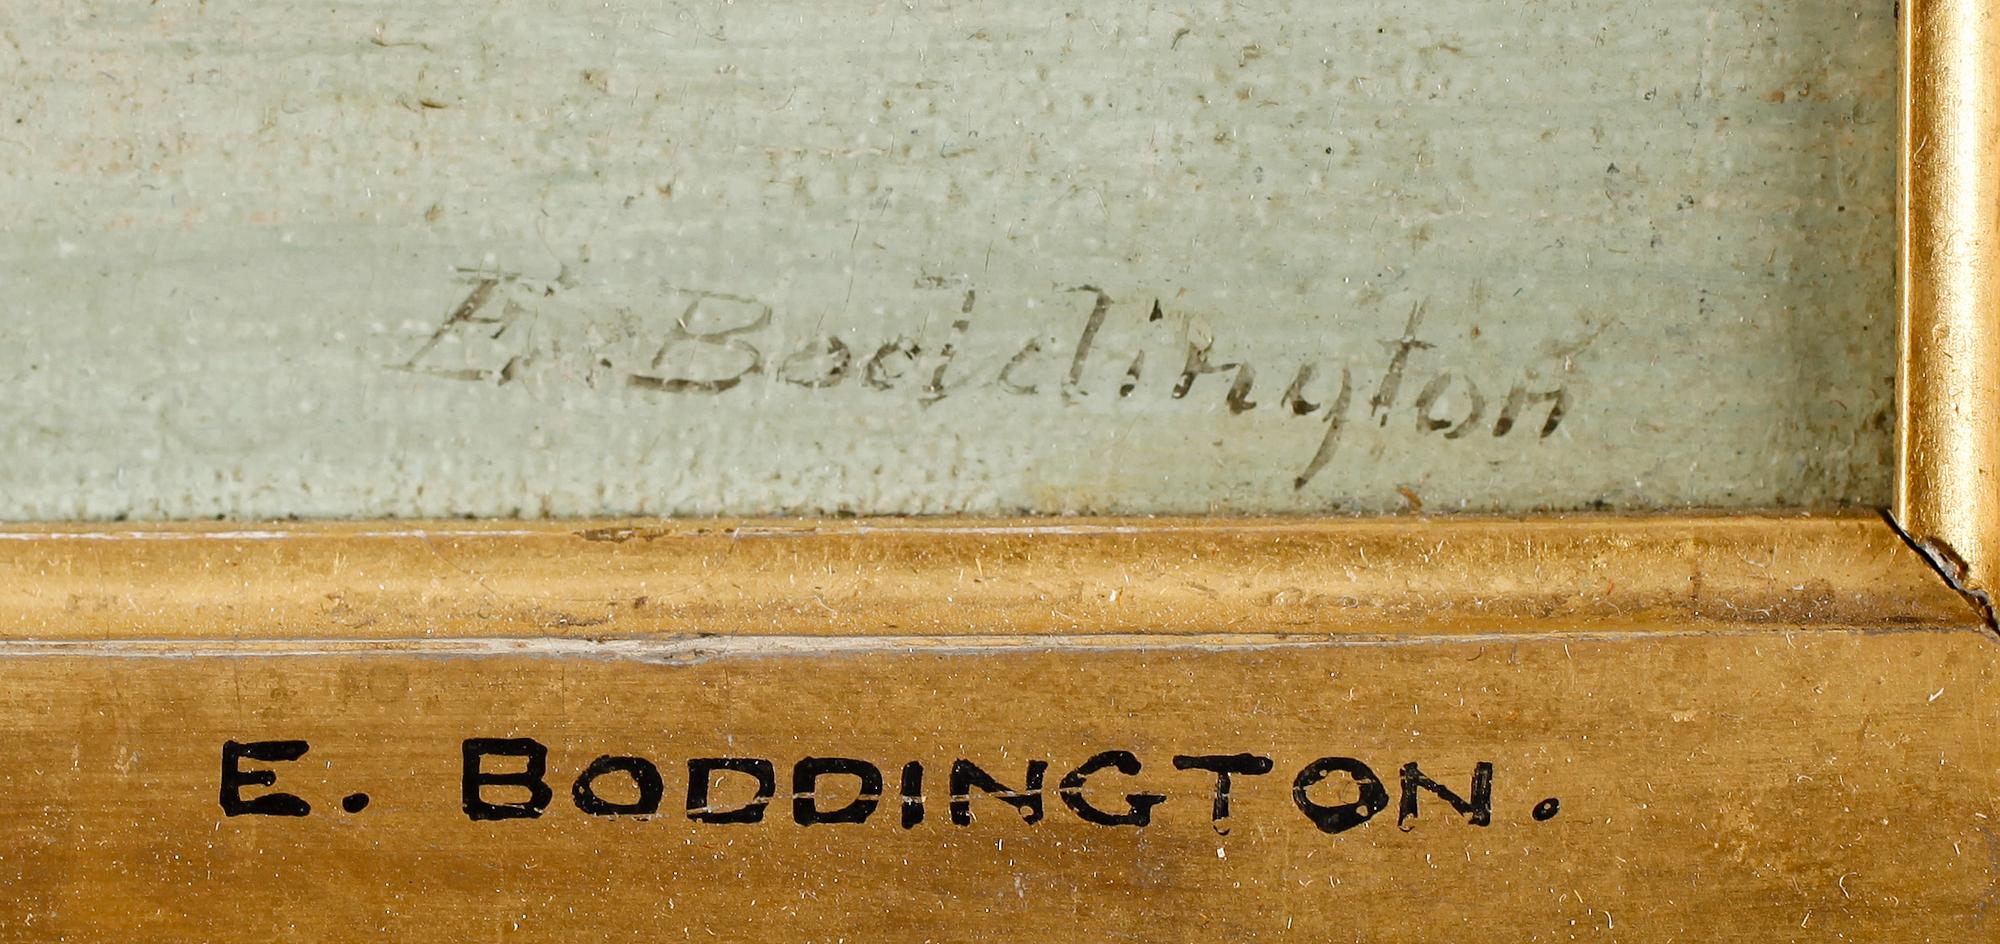 E. Boddington
E. BODDINGTON.